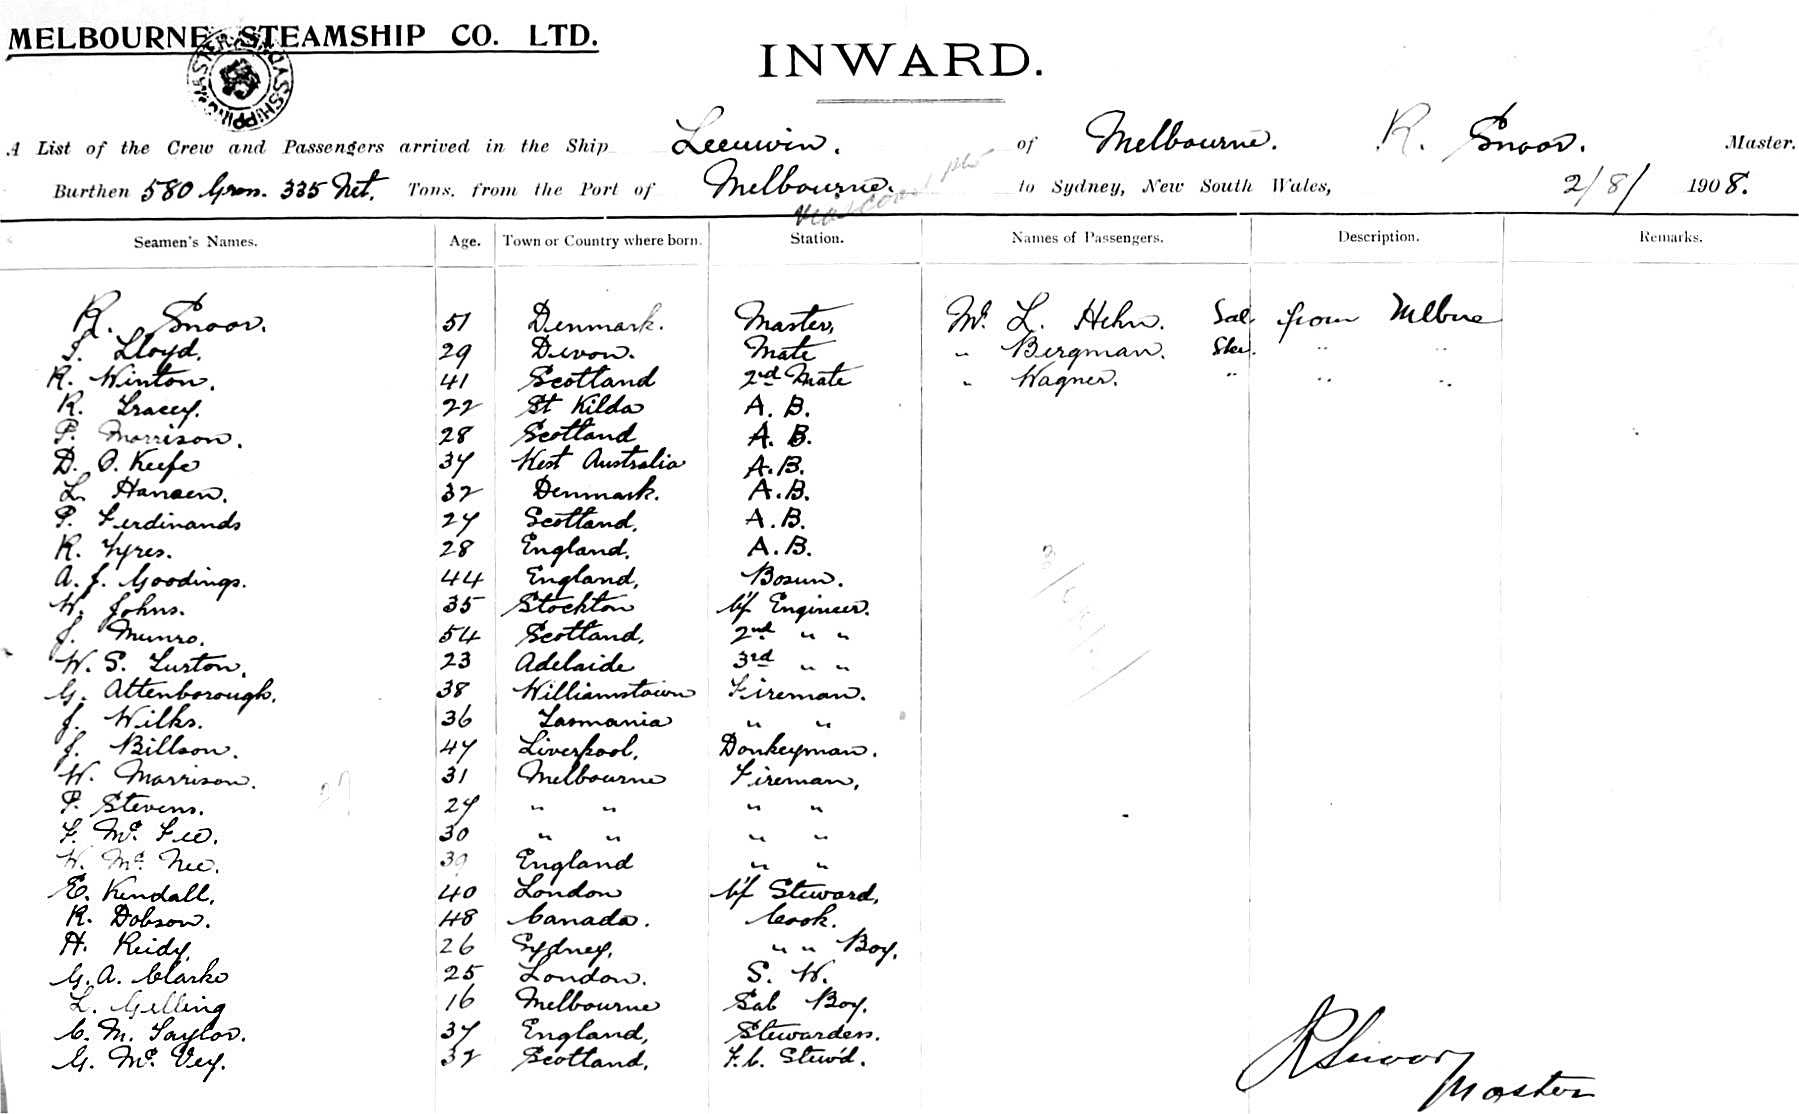 MELBOURNE STEAMSHIP CO. LTD.
INWARD.
A List of the Crew and Passengers arrived in the Ship Leeuwin. of Melbourne. R. Snoor. Master.
Burthen 580 Gross. 335 Net. Tons, from the Port of Melbourne. to Sydney, New South Wales, 2/8/ 1908.
Seamen's Names. Age. Town or Country where born. Station. Names of Passengers. Description. Remarks.
R. Snoor. 51 Denmark. Master, Mr. L. Hehn. Sal. from Melbne
Lloyd. 29 Devon. Mate " Bergman. Ste. " "
R. Winton. 41 Scotland 2nd Mate " Wagner. " " "
R. Tracey. 22 St Kilda A. B.
P. Morrison. 28 Scotland A. B.
D. O. Keefe 37 West Australia A. B.
L. Hansen. 32 Denmark. A. B.
P. Ferdinands 27 Scotland, A. B.
R. Tyres. 28 England, A. B.
A. J. Goodings. 44 England, Bosun.
W. Johns. 35 Stockton C/f Engineer.
J. Munro. 54 Scotland, 2nd " "
W. S. Turton. 23 Adelaide 3rd " "
G. Attenborough. 38 Williamstown Fireman.
J. Wilks. 36 Tasmania " "
J. Billson. 47 Liverpool, Donkeyman.
W. Morrison. 31 Melbourne Fireman,
P. Stevens. 27 " " " "
F. Mc. Fee. 30 " " " "
W. Mc. Nee. 39 England " "
E. Kendall. 40 London C/f Steward,
R. Dobson. 48 Canada. Cook.
H. Reidy. 26 Sydney, " " Boy.
G. A. Clarke 25 London. S. W.
L. Gelling 16 Melbourne Sal Boy.
C. M. Taylor. 37 England, Stewardess.
G. Mc. Vey. 32 Scotland, F. C. Stew'd.
R Snoor
Master